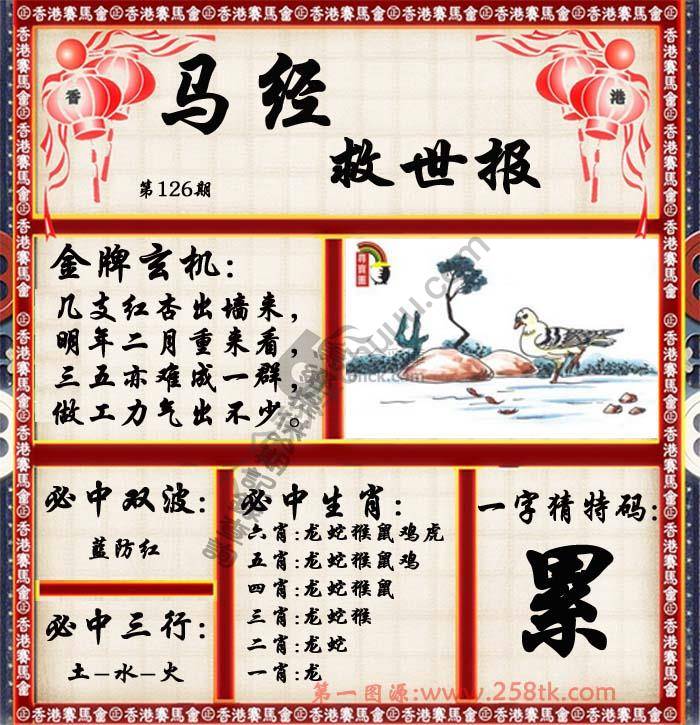 香港賽馬會
香
港
马经
救世报
第126期
金牌玄机:
几支红杏出墙来,
明年二月重来看,
三五亦难成一群,
做工力气出不少。
寻宝图
必中双波:
蓝防红
必中三行:
土-水-火
必中生肖:
六肖:龙蛇猴鼠鸡虎
五肖:龙蛇猴鼠鸡
四肖:龙蛇猴鼠
三肖:龙蛇猴
二肖:龙蛇
一肖:龙
一字猜特码:
累
第一图源:www.258tk.com